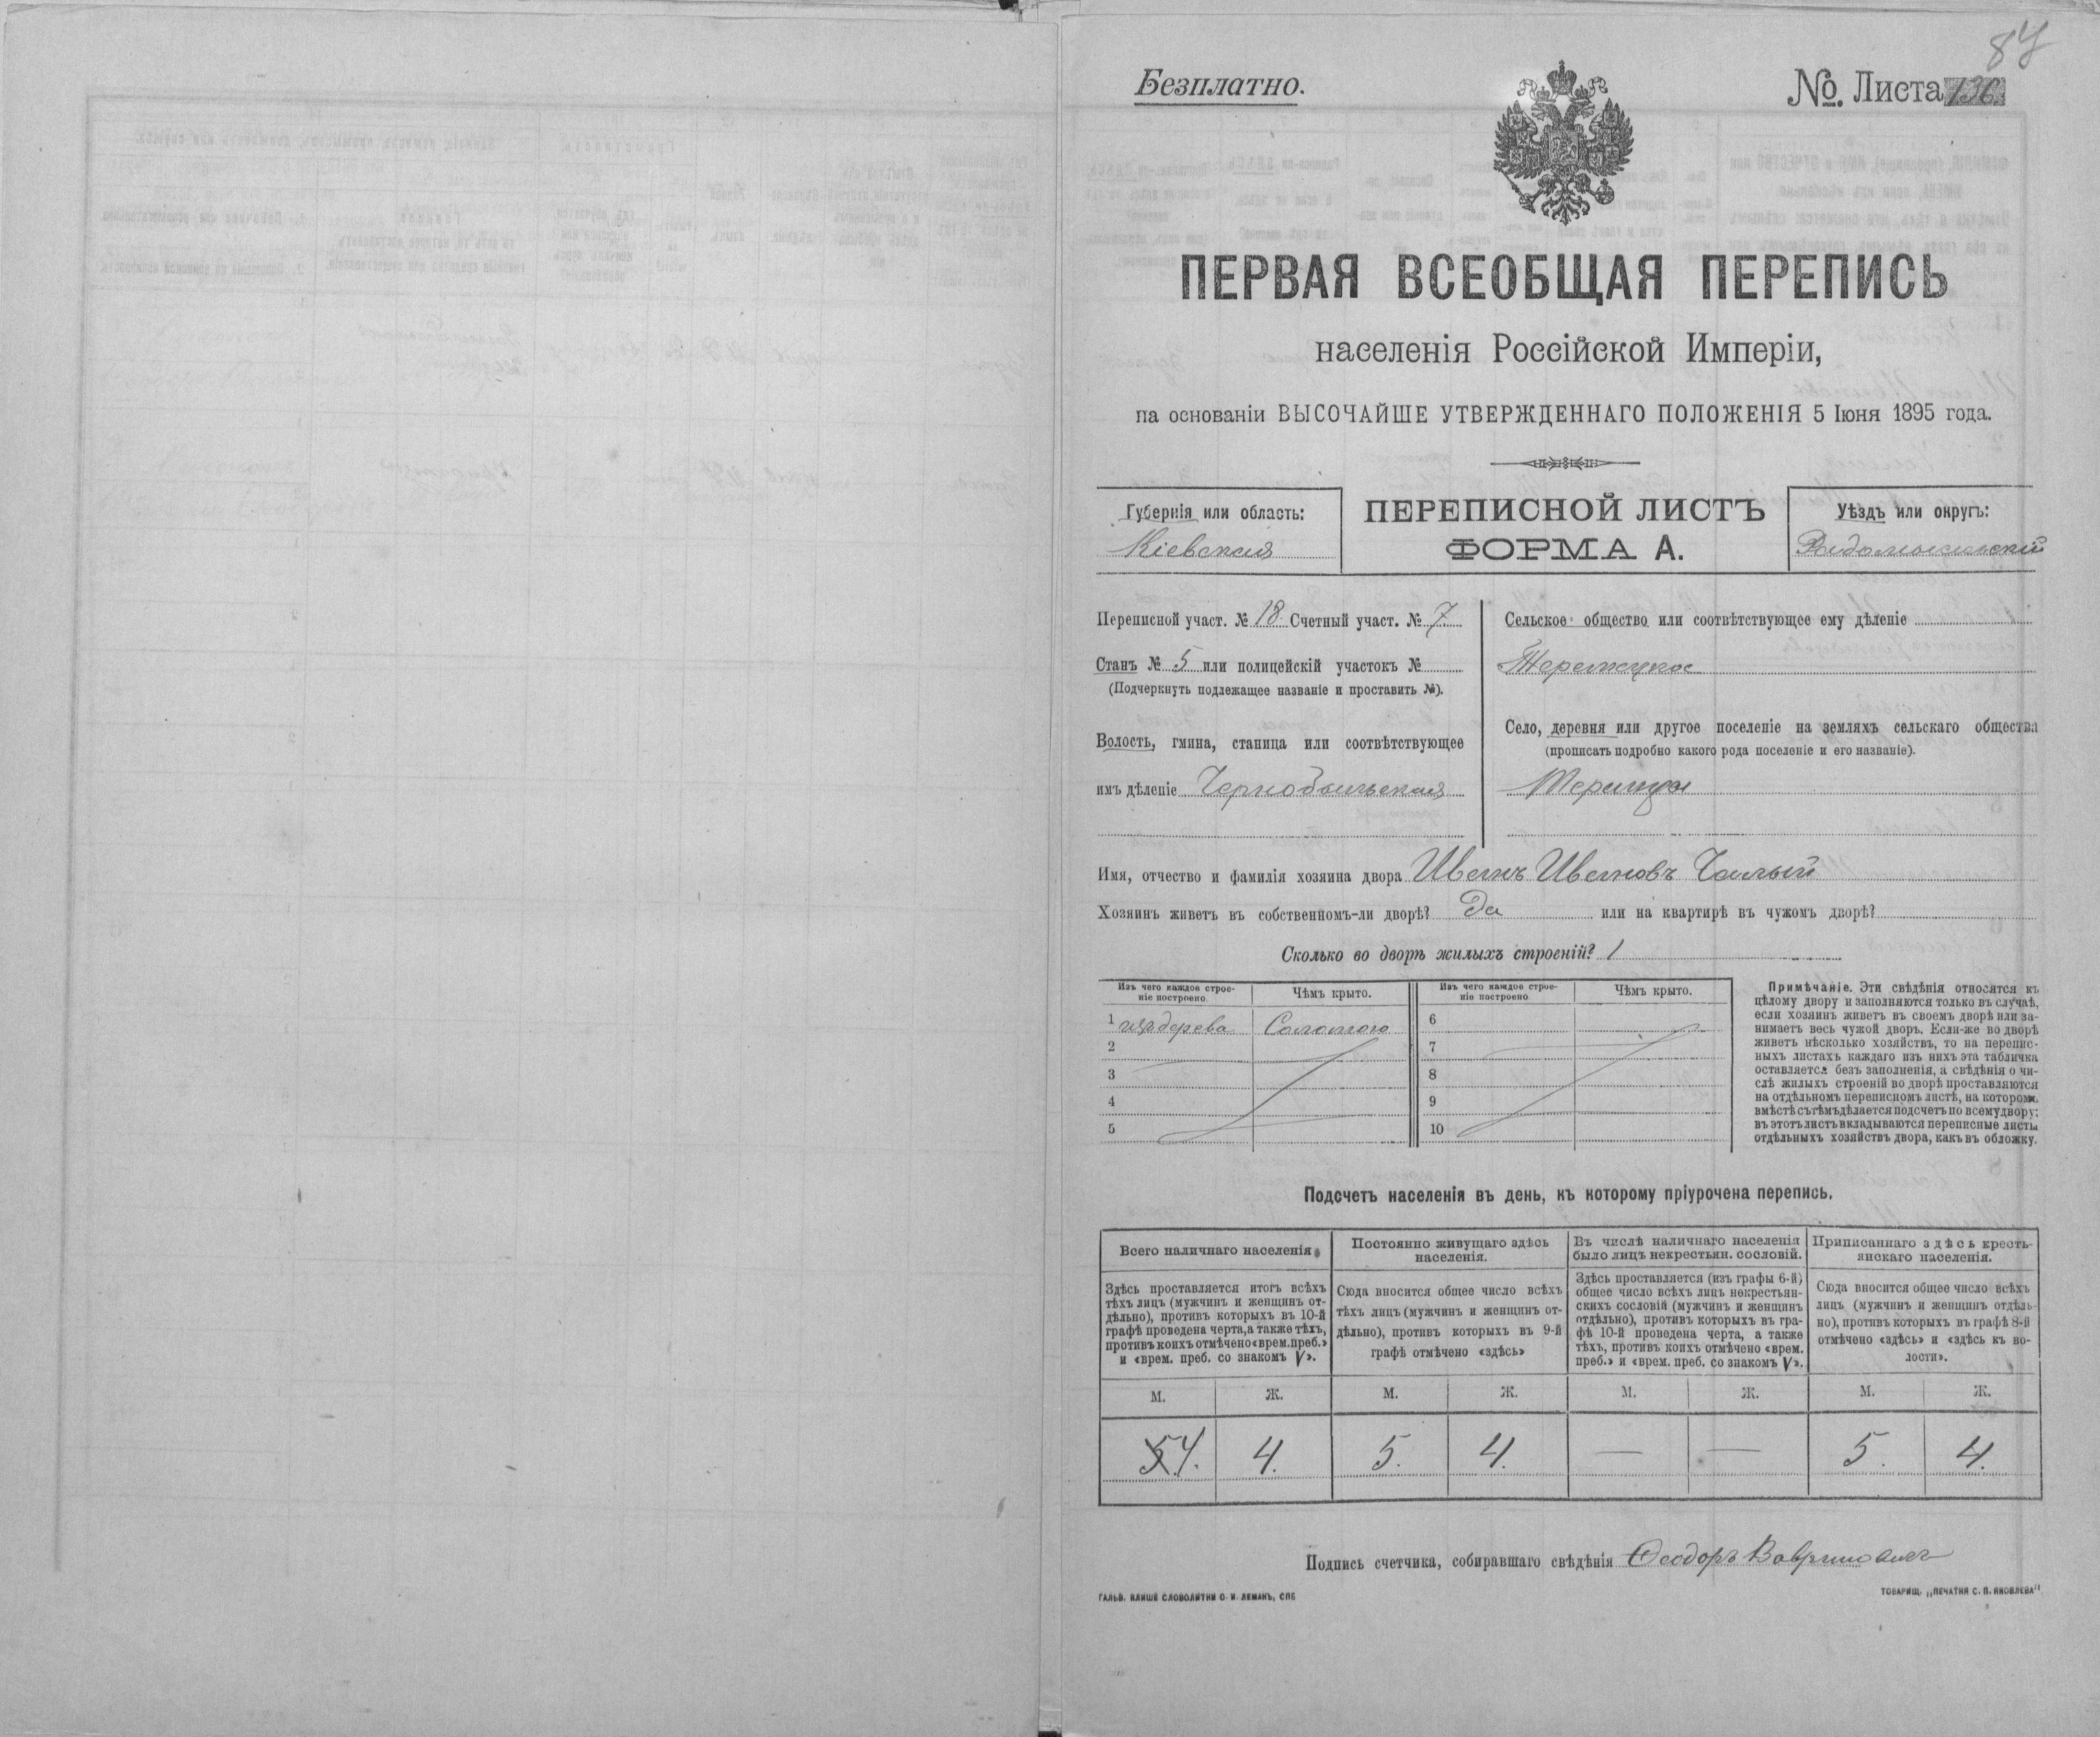 87
Безплатно.
№. Листа 136.
ПЕРВАЯ ВСЕОБЩАЯ ПЕРЕПИСЬ
населенія Россійской Имперіи,
на основаніи ВЫСОЧАЙШЕ УТВЕРЖДЕННАГО ПОЛОЖЕНІЯ 5 Іюня 1895 года.
Губернія или область:
Кіевская
ПЕРЕПИСНОЙ ЛИСТЪ
ФОРМА А.
Уѣздъ или округъ:
Радомысльскій
Переписной участ. № 18. Счетный участ. № 7.
Станъ № 5 или полицейскій участокъ №
(Подчеркнуть подлежащее названіе и проставить №).
Волость, гмина, станица или соотвѣтствующее
имъ дѣленіе Чернобыльская
Сельское общество или соотвѣтствующее ему дѣленіе
Село, деревня или другое поселеніе на земляхъ сельскаго общества
(прописать подробно какого рода поселеніе и его названіе).
Имя, отчество и фамилія хозяина двора Иванъ Ивановъ Чалый
Хозяинъ живетъ въ собственномъ-ли дворѣ? Да или на квартирѣ въ чужомъ дворѣ?
Сколько во дворѣ жилыхъ строеній? 1
Изъ чего каждое строе-
ніе построено
Чѣмъ крыто.
Изъ чего каждое строе-
ніе построено
Чѣмъ крыто.
1 изъ дерева Соломою 6
2 7
3 8
4 9
5 10
Примѣчаніе. Эти свѣдѣнія относятся къ
цѣлому двору и заполняются только въ случаѣ,
если хозяинъ живетъ въ своемъ дворѣ или за-
нимаетъ весь чужой дворъ. Если-же во дворѣ
живетъ нѣсколько хозяйствъ, то на перепис-
ныхъ листахъ каждаго изъ нихъ эта табличка
оставляется безъ заполненія, а свѣдѣнія о чи-
слѣ жилыхъ строеній во дворѣ проставляются
на отдѣльномъ переписномъ листѣ, на которомъ
вмѣстѣ съ тѣмъ дѣлается подсчетъ по всему двору;
въ этотъ листъ вкладываются переписные листы
отдѣльныхъ хозяйствъ двора, какъ въ обложку.
Подсчетъ населенія въ день, къ которому пріурочена перепись.
Всего наличнаго населенія.
Здѣсь проставляется итогъ всѣхъ
тѣхъ лицъ (мужчинъ и женщинъ от-
дѣльно), противъ которыхъ въ 10-й
графѣ проведена черта, а также тѣхъ,
противъ коихъ отмѣчено «врем. преб.»
и «врем. преб. со знакомъ V».
Постоянно живущаго здѣсь
населенія.
Сюда вносится общее число всѣхъ
тѣхъ лицъ (мужчинъ и женщинъ от-
дѣльно), противъ которыхъ въ 9-й
графѣ отмѣчено «здѣсь»
Въ числѣ наличнаго населенія
было лицъ некрестьян. сословій.
Здѣсь проставляется (изъ графы 6-й)
общее число всѣхъ лицъ некрестьян-
скихъ сословій (мужчинъ и женщинъ
отдѣльно), противъ которыхъ въ гра-
фѣ 10-й проведена черта, а также
тѣхъ, противъ коихъ отмѣчено «врем.
преб.» и «врем. преб. со знакомъ V».
Приписаннаго здѣсь кресть-
янскаго населенія.
Сюда вносится общее число всѣхъ
лицъ (мужчинъ и женщинъ отдѣль-
но), противъ которыхъ въ графѣ 8-й
отмѣчено «здѣсь» и «здѣсь къ во-
лости».
М. Ж. М. Ж. М. Ж. М. Ж.
5 4. 4. 5. 4. — — 5. 4.
Подпись счетчика, собиравшаго свѣдѣнія Ѳеодоръ
ГАЛЬВ. КЛИШЕ СЛОВОЛИТНИ О. И. ЛЕМАНЪ, СПБ
ТОВАРИЩ. „ПЕЧАТНЯ С. П. ЯКОВЛЕВА"